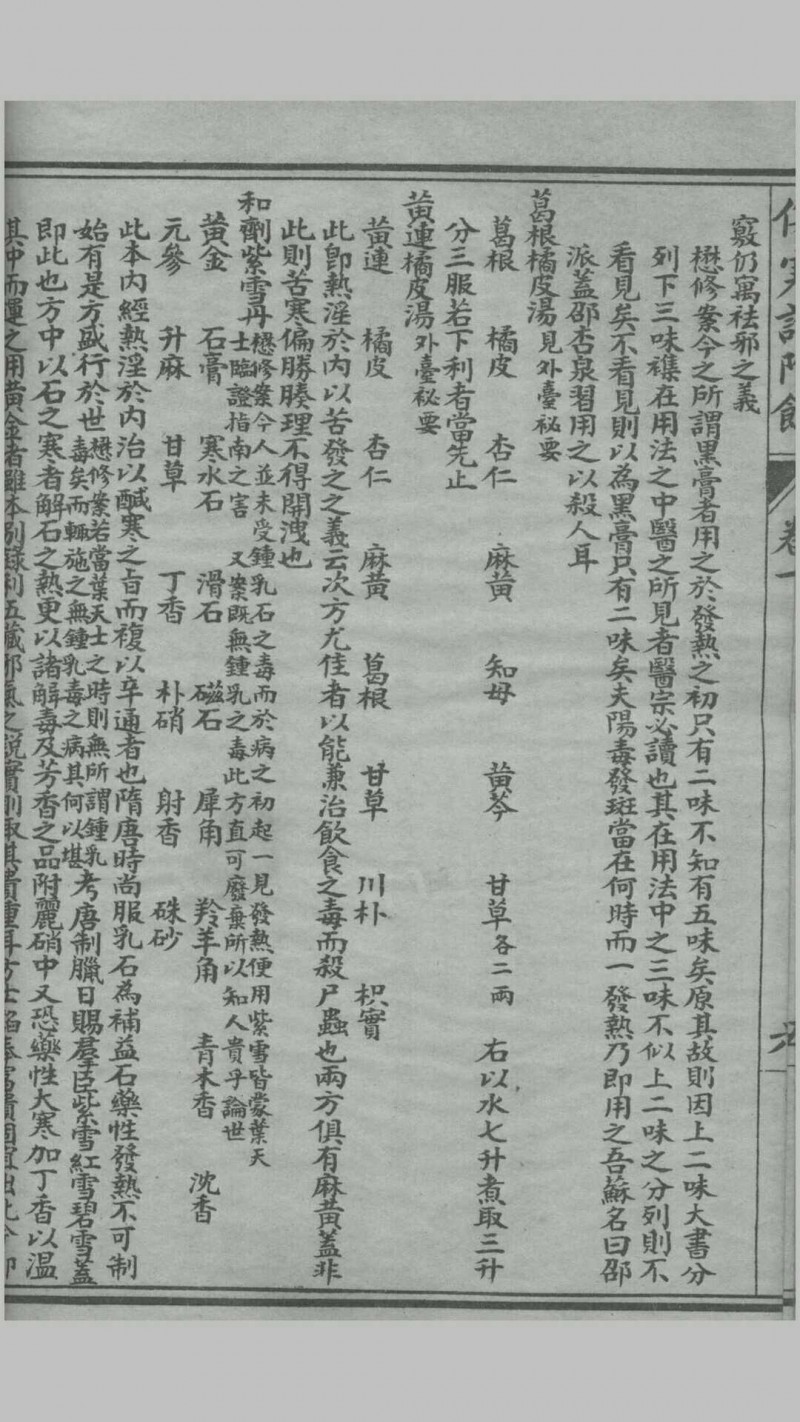 傷寒論附餘 卷一
竅仍寓祛邪之義
懋修案今之所謂黑膏者用之於發熱之初只有二味不知有五味矣原其故則因上二味大書分
列下三味襍在用法之中醫之所見者醫宗必讀也其在用法中之三味不似上二味之分列則不
看見矣不看見則以為黑膏只有二味矣夫陽毒發斑當在何時而一發熱乃即用之吾蘇名曰邵
派蓋邵杏泉習用之以殺人耳
葛根橘皮湯 見外臺祕要
葛根 橘皮 杏仁 麻黄 知母 黄芩 甘草各二兩 右以水七升煮取三升
分三服若下利者當先止
黄連橘皮湯 外臺祕要
黄連 橘皮 杏仁 麻黄 葛根 甘草 川朴 枳實
此即熱淫於內以苦發之之義云次方尤佳者以能兼治飲食之毒而殺尸蟲也兩方俱有麻黄蓋非
此則苦寒偏勝腠理不得開洩也
和劑紫雪丹 懋修案今人並未受鍾乳石之毒而於病之初起一見發熱便用紫雪皆蒙葉天
士臨證指南之害 又案既無鍾乳之毒此方直可廢棄所以知人貴乎論世
黄金 石膏 寒水石 滑石 磁石 犀角 羚羊角 青木香 沈香
元參 升麻 甘草 丁香 朴硝 射香 硃砂
此本內經熱淫於內治以鹹寒之旨而複以辛通者也隋唐時尚服乳石為補益石藥性發熱不可制
始有是方盛行於世 懋修案若當葉天士之時則無所謂鍾乳
毒矣而輒施之無鍾乳毒之病其何以堪 考唐制臘日賜羣臣紫雪紅雪碧雪蓋
即此也方中以石之寒者解石之熱更以諸解毒及芳香之品附麗硝中又恐藥性大寒加丁香以溫
其中而運之用黄金者雖本別錄利五藏邪氣之說實則取其貴重耳方士